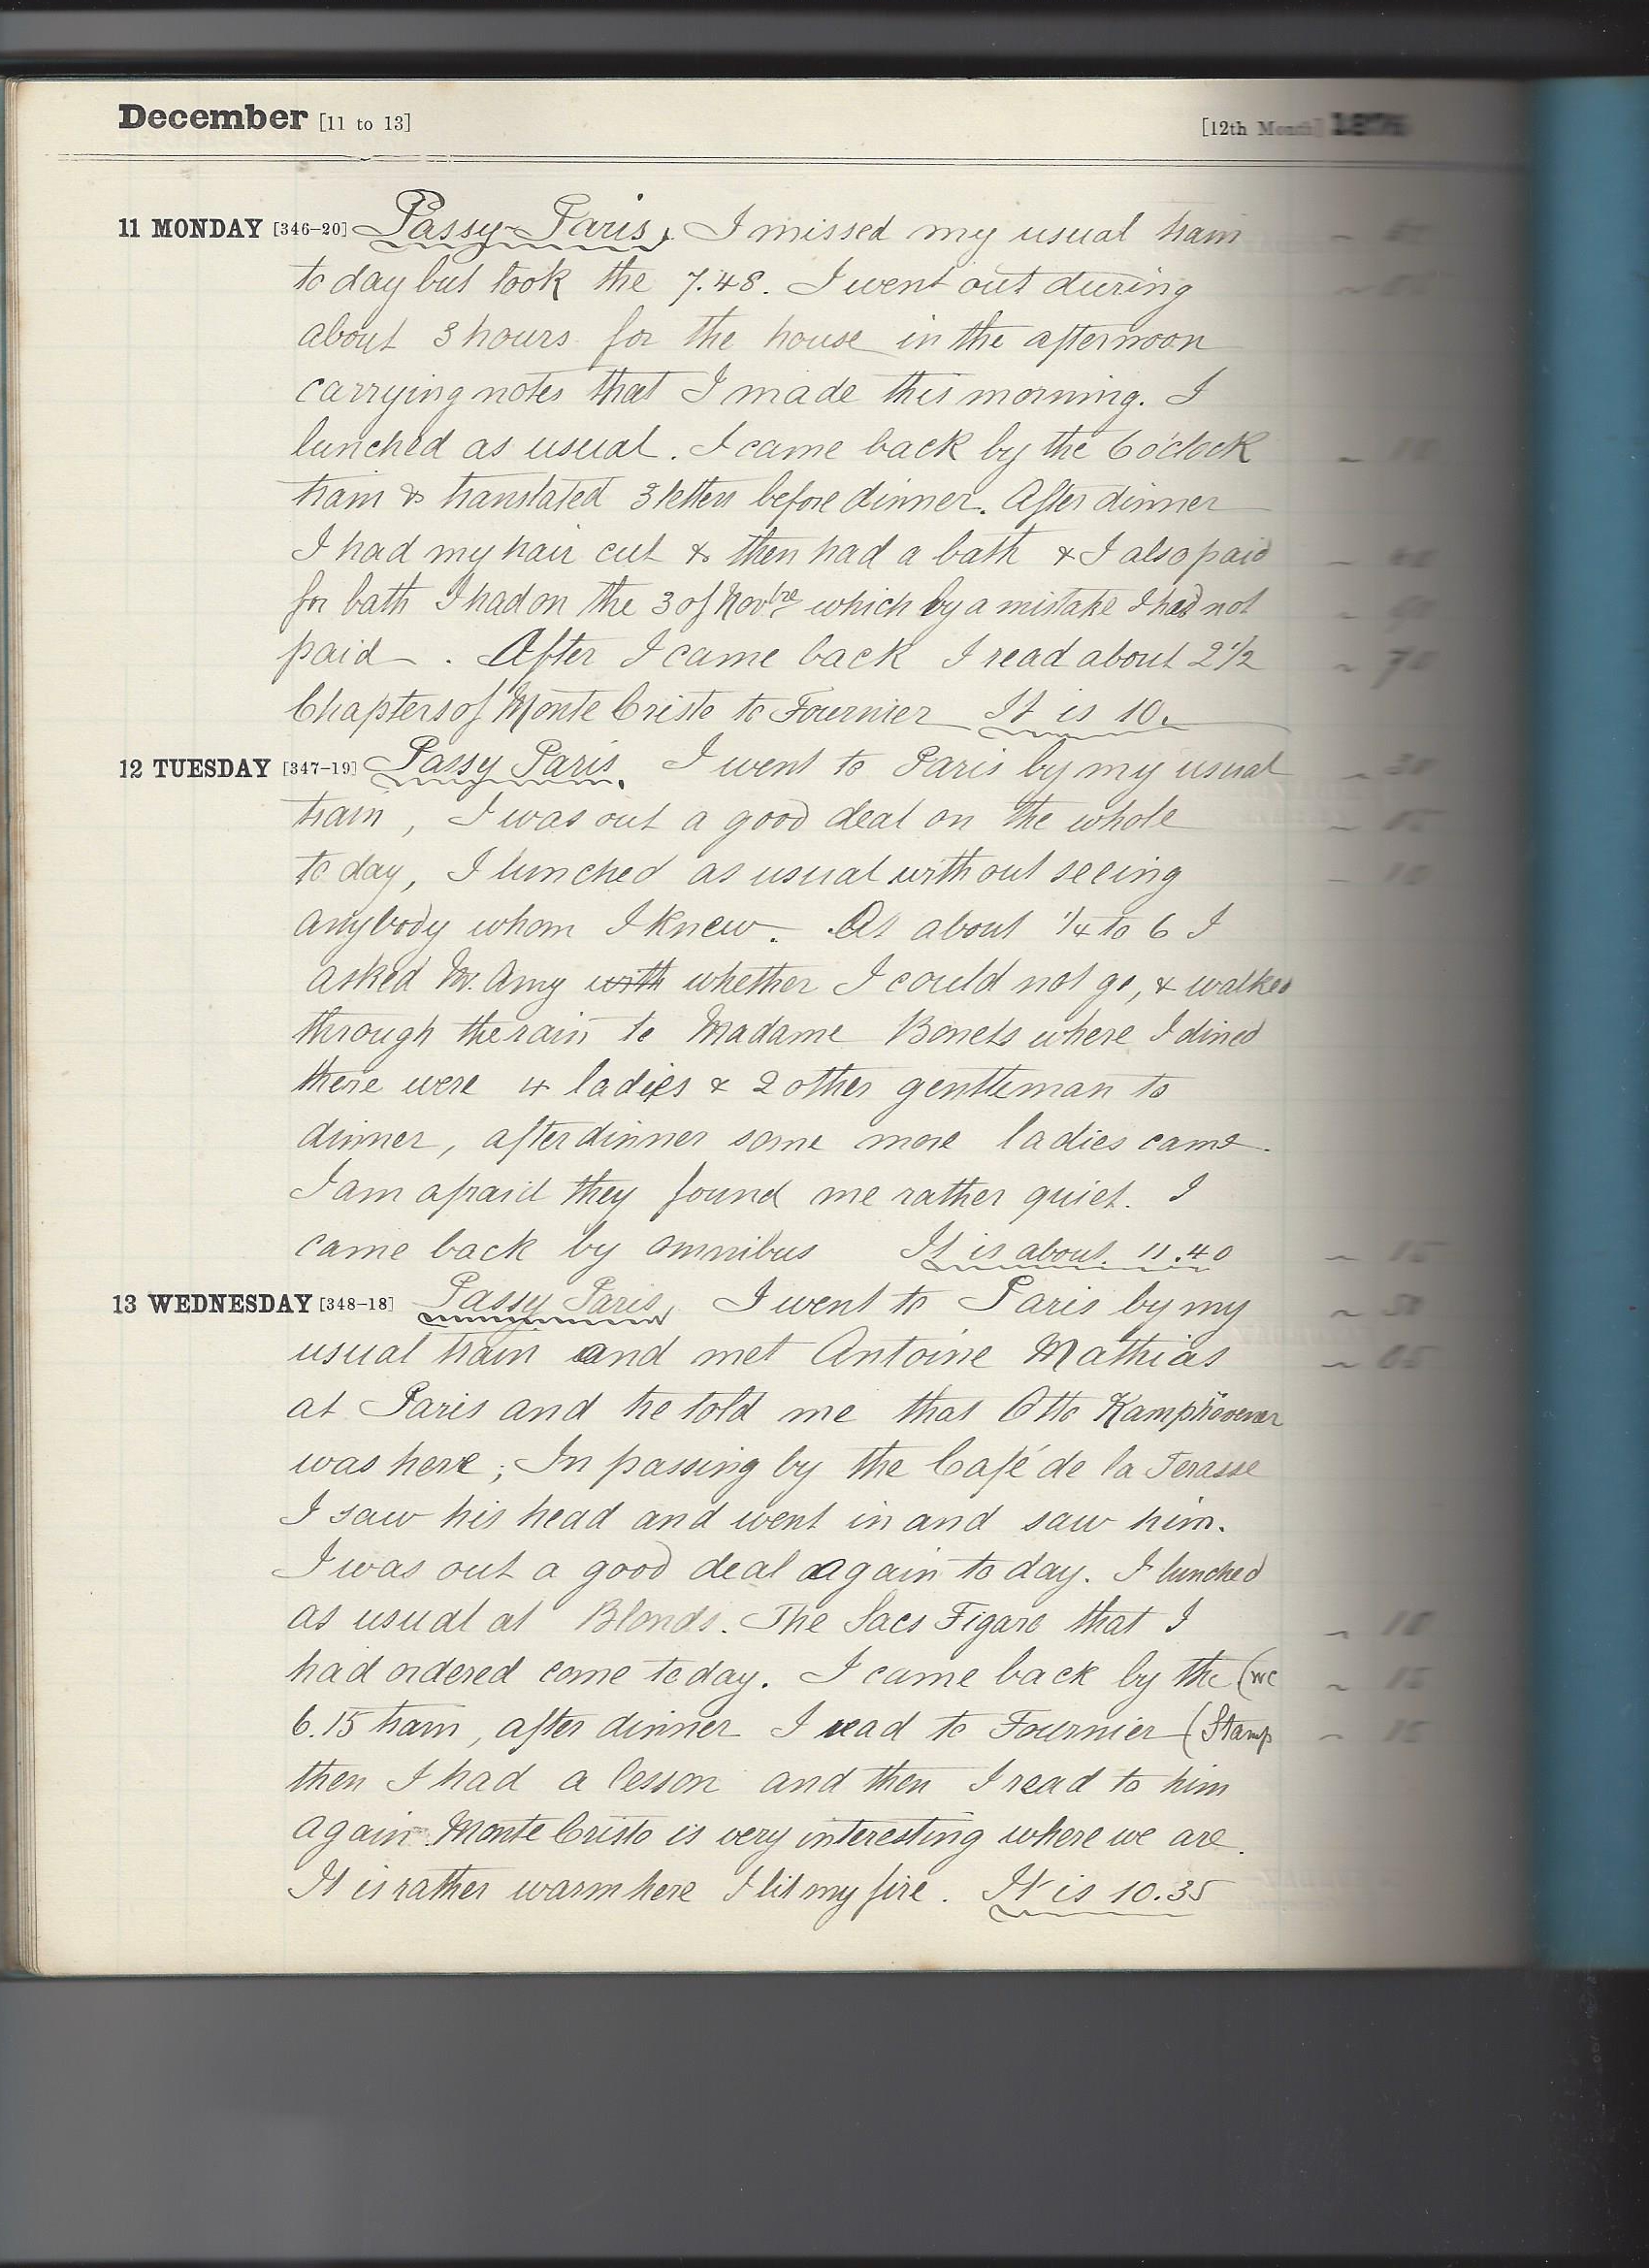 December [11 to 13] [12th Month] 1876
11 MONDAY [346-20] Passy-Paris, I missed my usual train
to day but took the 7.48. I went out during
about 3 hours for the house in the afternoon
carrying notes that I made this morning. I
lunched as usual. I came back by the 6 o'clock
train & translated 3 letters before dinner. After dinner
I had my hair cut & then had a bath & I also paid
for bath I had on the 3 of Novbre which by a mistake I had not
paid. After I came back I read about 2 1/2
Chapters of Monte Cristo to Fournier It is 10.
12 TUESDAY [347-19] Passy Paris. I went to Paris by my usual
train, I was out a good deal on the whole
to day, I lunched as usual without seeing
anybody whom I knew. At about 1/4 to 6 I
asked Mr. Amy with whether I could not go, & walked
through the rain to Madame Bonets where I dined
there were 4 ladies & 2 other gentleman to
dinner, after dinner some more ladies came.
I am afraid they found me rather quiet. I
came back by omnibus It is about 11.40
13 WEDNESDAY [348-18] Passy Paris, I went to Paris by my
usual train and met Antoine Mathias
at Paris and he told me that Otto Kamphövener
was here; In passing by the Café de la Terasse
I saw his head and went in and saw him.
I was out a good deal again to day. I lunched
as usual at Blonds. The Sacs Figaro that I
had ordered come to day. I came back by the (wc
6.15 train, after dinner I read to Fournier (Stamp
then I had a lesson and then I read to him
again. Monte Cristo is very interesting where we are.
It is rather warm here I lit my fire. It is 10.35